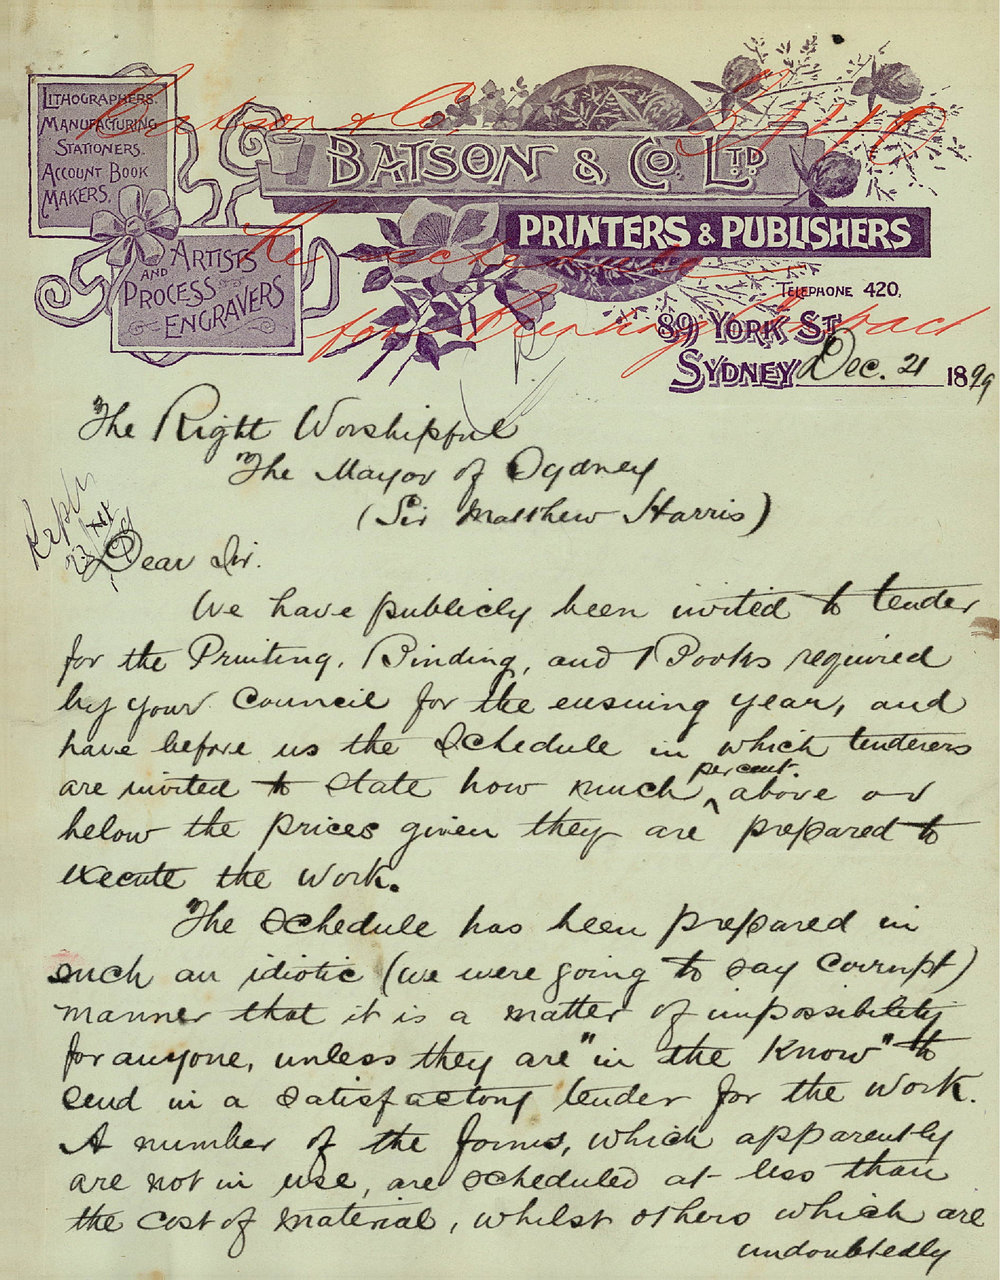 LITHOGRAPHERS.
MANUFACTURING
STATIONERS.
ACCOUNT BOOK
MAKERS.
ARTISTS
AND
PROCESS
ENGRAVERS
BATSON & CO. LTD
PRINTERS & PUBLISHERS
TELEPHONE 420.
89 YORK ST
SYDNEY Dec. 21 1899
The Right Worshipful
The Mayor of Sydney
(Sir Matthew Harris)
Dear Sir.
We have publicly been invited to tender
for the Printing, Binding, and Books required
by your Council for the ensuing year, and
have before us the Schedule in which tenderers
are invited to state how much per cent. above or
below the prices given they are prepared to
execute the work.
The Schedule has been prepared in
such an idiotic (we were going to say Corrupt)
manner that it is a matter of impossibility
for anyone, unless they are "in the know" to
send in a satisfactory tender for the work.
A number of the forms, which apparently
are not in use, are scheduled at less than
the cost of material, whilst others which are
undoubtedly